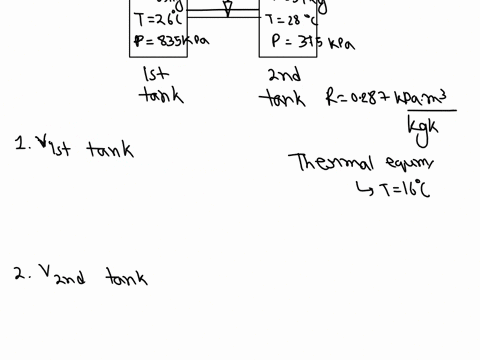 T=26°C
P=835kPa
T=28°C
P=315 kPa
1st
tank
2nd
tank
R=0.287 kPa.m³
kgk
1. V1st tank
Thermal equim
↳ T=16°C
2. V2nd tank